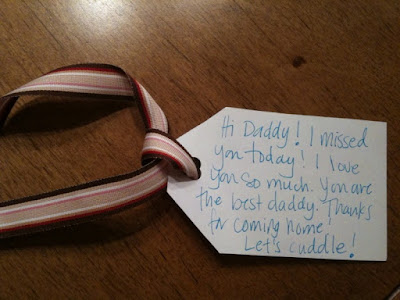 Hi Daddy! I missed
you today! I love
you so much. You are
the best daddy. Thanks
for coming home!
Let's cuddle!